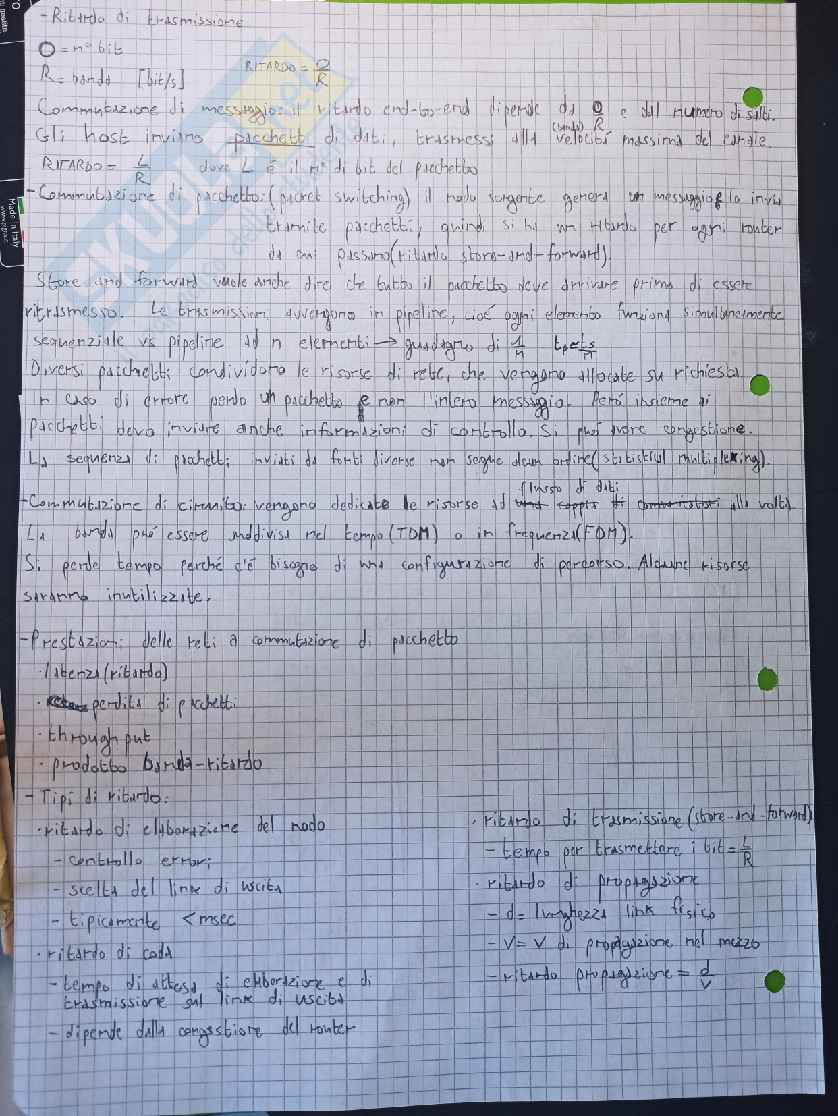 - Ritardo di trasmissione
O = n° bit
R = banda [bit/s] RITARDO = O/R
Commutazione di messaggio: il ritardo end-to-end dipende da O/R e dal numero di salti.
Gli host inviano pacchetti di dati, trasmessi alla velocità (banda) massima del canale.
RITARDO = L/R dove L è il n° di bit del pacchetto
- Commutazione di pacchetto: (packet switching) il nodo sorgente genera un messaggio e lo invia
tramite pacchetti, quindi si ha un ritardo per ogni router
da cui passano (ritardo store-and-forward).
Store and forward vuole anche dire che tutto il pacchetto deve arrivare prima di essere
ritrasmesso. Le trasmissioni avvengono in pipeline, cioé ogni elemento funziona simultaneamente
sequenziale vs pipeline ad n elementi → guadagno di 1/n tp=ts/n
Diversi pacchetti condividono le risorse di rete, che vengono allocate su richiesta.
In caso di errore perdo un pacchetto e non l'intero messaggio. Peró insieme ai
pacchetti devo inviare anche informazioni di controllo. Si puó avere congestione.
La sequenza di pacchetti inviati da fonti diverse non segue alcun ordine (statistical multiplexing).
- Commutazione di circuito: vengono dedicate le risorse ad flusso di dati alla volta
La banda puó essere suddivisa nel tempo (TDM) o in frequenza (FDM).
Si perde tempo perché c'é bisogno di una configurazione di percorso. Alcune risorse
saranno inutilizzate.
- Prestazioni delle reti a commutazione di pacchetto
· latenza (ritardo)
· perdita di pacchetti
· throughput
· prodotto banda-ritardo
- Tipi di ritardo:
· ritardo di elaborazione del nodo
- controllo errori
- scelta del link di uscita
- tipicamente < msec
· ritardo di coda
- tempo di attesa di elaborazione e di
trasmissione sul link di uscita
- dipende dalla congestione del router
· ritardo di trasmissione (store-and-forward)
- tempo per trasmettere i bit = L/R
· ritardo di propagazione
- d = lunghezza link fisico
- V = V di propagazione nel mezzo
- ritardo propagazione = d/V
Made in Italy